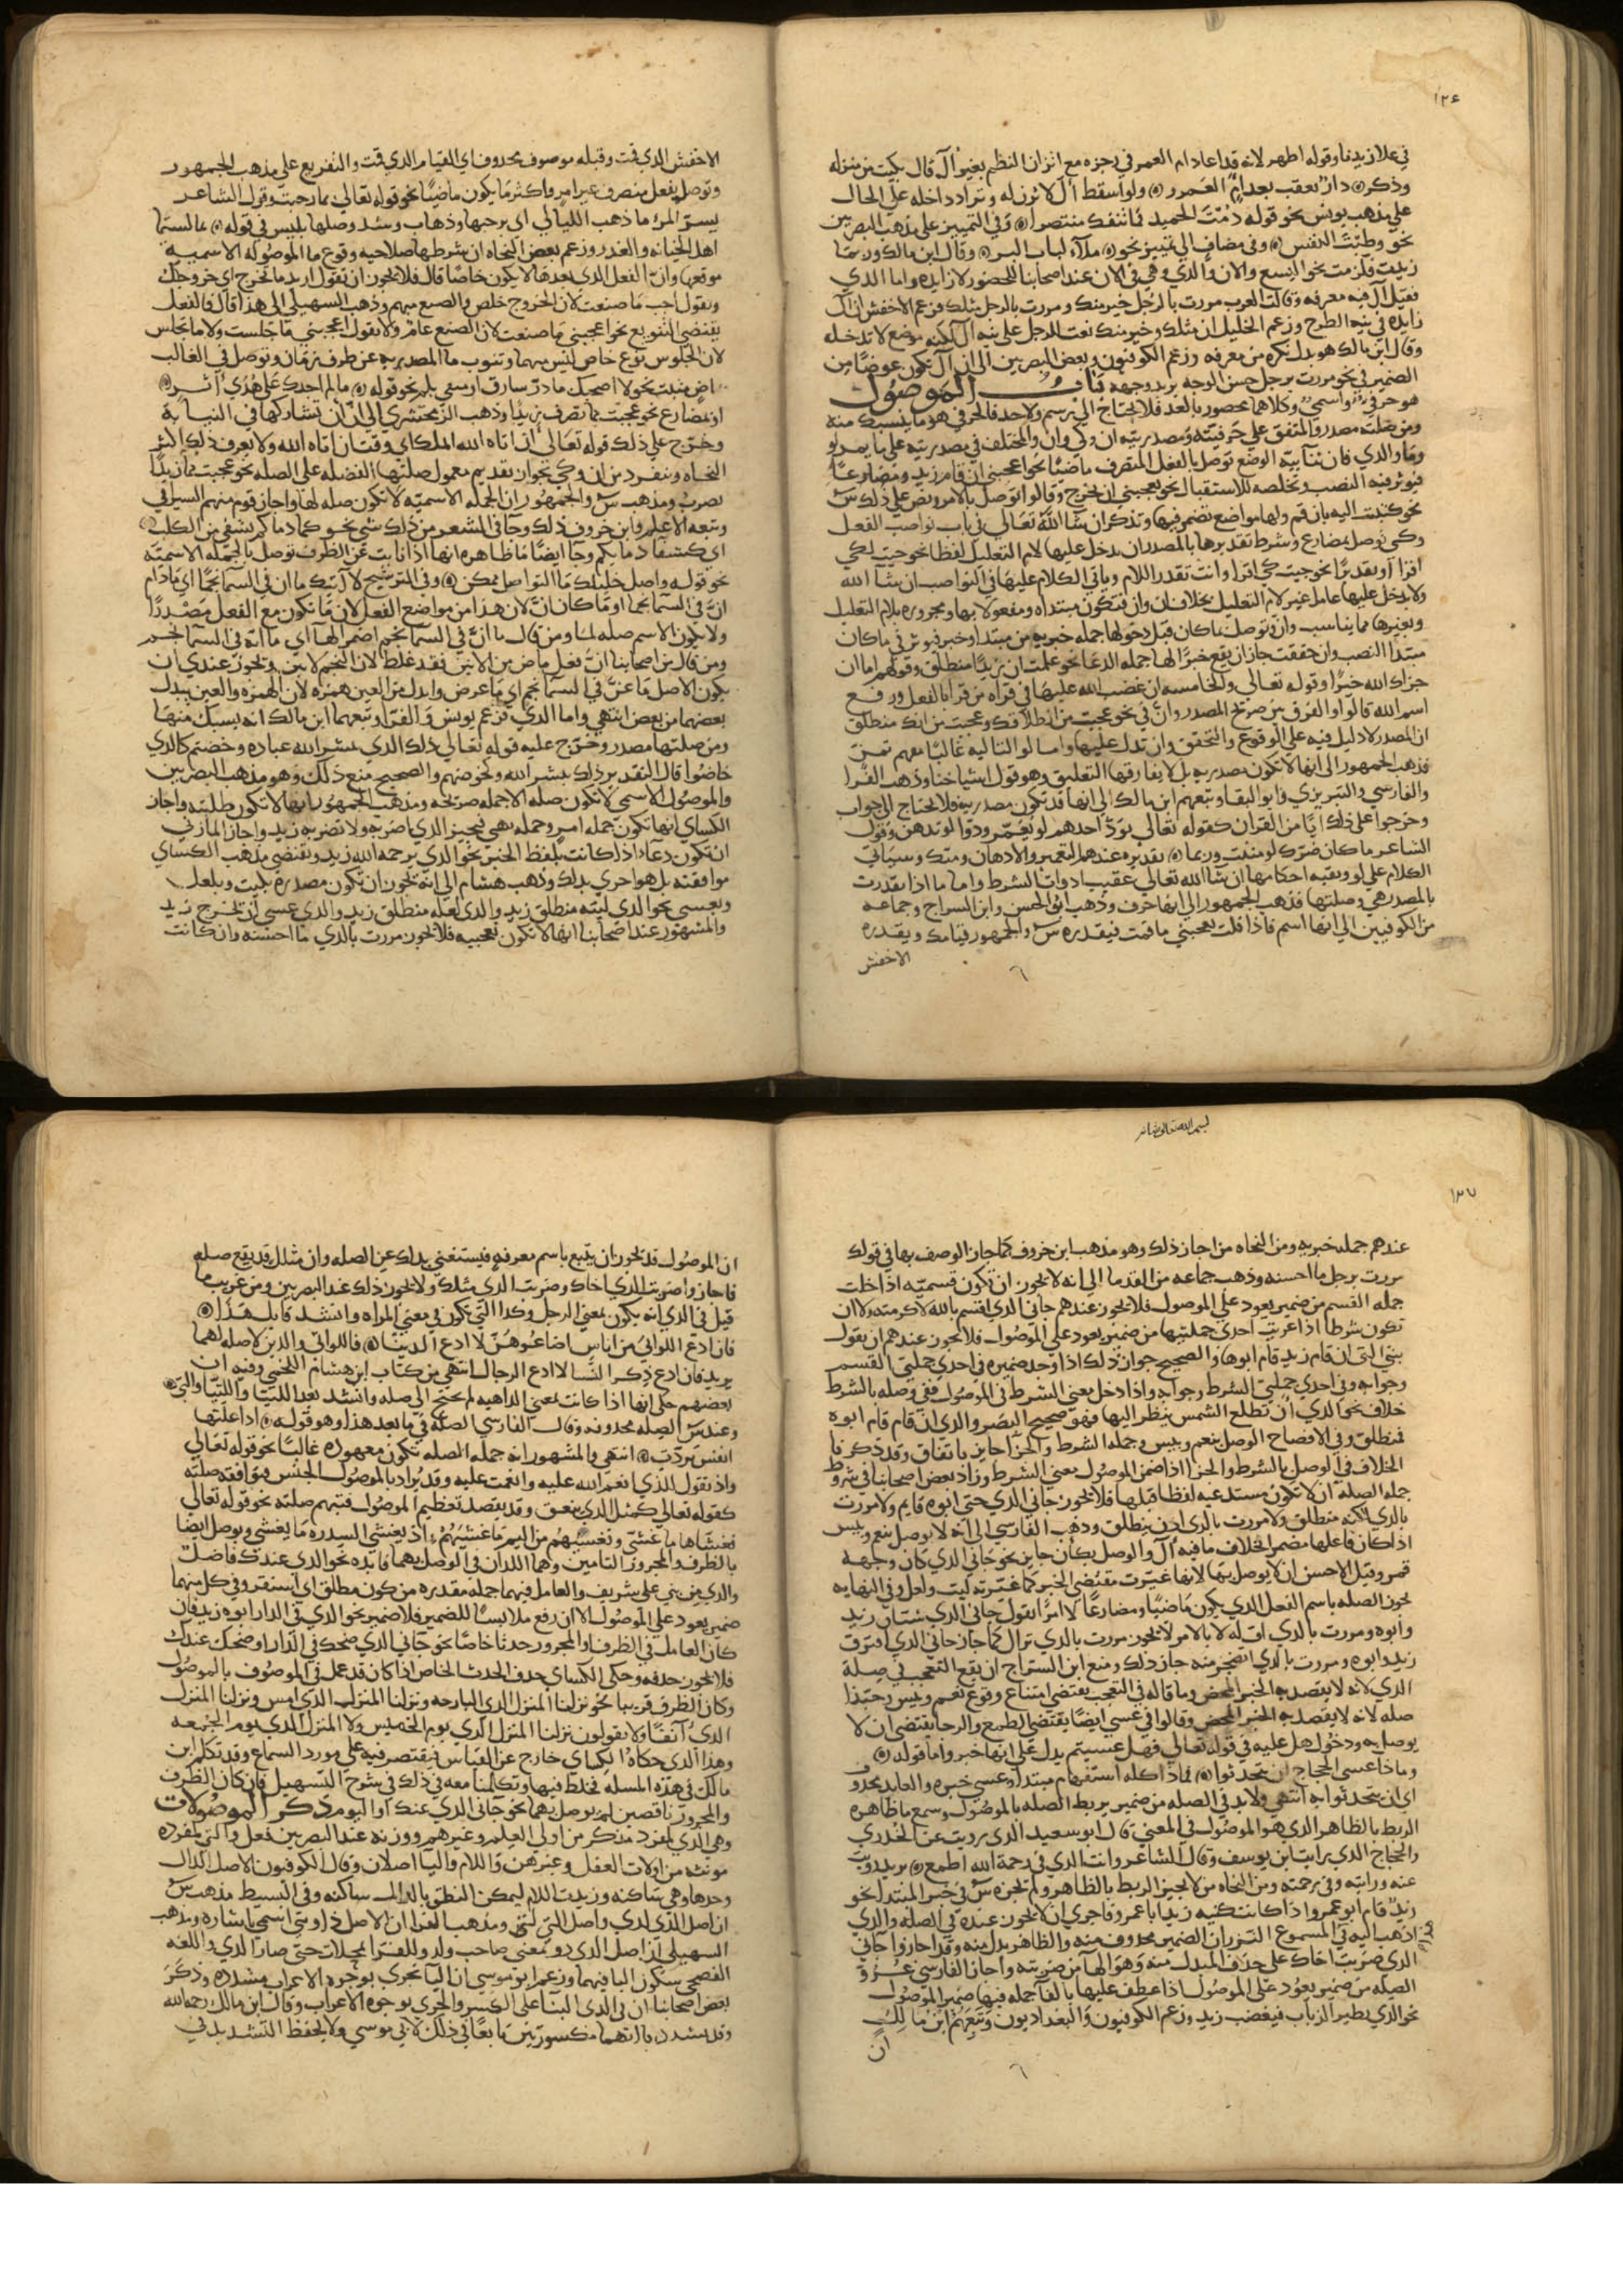 ١٢٦
في علا زيدنا وقوله اظهر لانه قد اعاد ام العمر في رجزه مع اتزان النظم بغير أل قال بكيت من منزله
وذكر دار تعقب بعد ام العمرو ولو اسقط أل لاتزن له وتزاد داخله على الحال
على مذهب يونس نحو قوله دمت الحميد فما تنفك منتصرا وفي التمييز على مذهب البصريين
نحو وطبت النفس وفي مضاف الى تمييز نحو ملآء لباب البر وقال ابن مالك وربما
زيدت فلزمت نحو اليسع والان والذي وهي في الان عند اصحابنا للحضور لا زايده واما الذي
فقيل أل فيه معرفه وقالت العرب مررت بالرجل خير منك ومررت بالرجل مثلك فزعم الاخفش ان أل
زايده في نيه الطرح وزعم الخليل ان مثلك وخير منك نعت للرجل على نيه أل لكنه موضع لا تدخله
وقال ابن مالك هو بدل نكره من معرفه وزعم الكوفيون وبعض البصريين الى ان أل تكون عوضا من
الضمير في نحو مررت برجل حسن الوجه يريد وجهه باب الموصول
هو حرفي واسمي وكلاهما محصور بالعد فلا يحتاج الى رسم ولا حد فالحرفي هو ما ينسبك منه
ومن صلته مصدر والمتفق على حرفيته ومصدريته ان وكي وان والمختلف في مصدريته على ما يمر لو
وما والذي فان ثنائيه الوضع توصل بالفعل المتصرف ماضيا نحو اعجبني ان قام زيد ومضارعا
فتوثر فيه النصب وتخلصه للاستقبال نحو يعجبني ان يخرج وقالوا توصل بالامر ونص على ذلك س
نحو كتبت اليه بان قم ولها مواضع تضمر فيها وتذكر ان شا الله تعالى في باب نواصب الفعل
وكي توصل بمضارع وشرط تقديرها بالمصدر ان يدخل عليها لام التعليل لفظا نحو جيت لكي
اقرا او تقديرا نحو جيت كي اقرا وانت تقدر اللام وياتي الكلام عليها في النواصب ان شا الله
ولا يدخل عليها عامل غير لام التعليل بخلاف ان وان فتكون مبتداه ومفعولا بها ومجروره بلام التعليل
وبغيرها مما يناسب وان وتوصل بما كان قبل دخولها جمله خبريه من مبتدا وخبر فيوثر في ما كان
مبتدا النصب وان خففت جاز ان يقع خبرا لها جمله الدعا نحو علمت ان زيدا منطلق وقولهم اما ان
جزاك الله خيرا وقوله تعالى والخامسه ان غضب الله عليها في قراه من قرا بالفعل ورفع
اسم الله قالوا والفرق بين صريح المصدر وان في نحو عجبت من انطلاقك وعجبت من انك منطلق
ان المصدر لا دليل فيه على الوقوع والتحقق وان تدل عليها واما لو التاليه غالبا مفهم تمن
فذهب الجمهور الى انها لا تكون مصدريه بل لا يفارقها التعليق وهو قول اشياخنا وذهب الفرا
والفارسي والتبريزي وابو البقا وتبعهم ابن مالك الى انها قد تكون مصدريه فلا تحتاج الى جواب
وخرجوا على ذلك ايا من القران كقوله تعالى يود احدهم لو يعمر ودوا لو تدهن وقول
الشاعر ما كان ضرك لو مننت وربما تقديره عندهم التعمير والادهان ومنك وسياتي
الكلام على لو وبقيه احكامها ان شا الله تعالى عقيب ادوات الشرط واما ما اذا تقدرت
بالمصدر هي وصلتها فذهب الجمهور الى انها حرف وذهب ابو الحسن وابن السراج وجماعه
من الكوفيين الى انها اسم فاذا قلت يعجبني ما قمت فيقدره س والجمهور قيامك ويقدره
الاخفش
الاخفش الذي قمت وقبله موصوف محذوف اي القيام الذي قمت والتفريع على مذهب الجمهور
وتوصل بفعل متصرف غير امر واكثر ما يكون ماضيا نحو قوله تعالى بما رحبت وقول الشاعر
يسر المرء ما ذهب الليالي اي برحبها وذهاب وشذ وصلها بليس في قوله بما لستما
اهل الخيانه والغدر وزعم بعض النحاه ان شرطها صلاحيه وقوع ما الموصوله الاسميه
موقعها وان الفعل الذي بعدها لا يكون خاصا قال فلا يجوز ان تقول اريد ما تخرج اي خروجك
وتقول احب ما صنعت لان الخروج خلص والصنع مبهم وذهب السهيلي الى هذا قال والفعل
يقتضي التنويع نحو اعجبني ما صنعت لان الصنع عام ولا تقول اعجبني ما جلست ولا ما تجلس
لان الجلوس نوع خاص ليس مبهما وتنوب ما المصدريه عن ظرف زمان وتوصل في الغالب
ماض مثبت نحو لا اصحبك ما ذر شارق او منفي بلم نحو قوله ما لم اجدك على هدى اثر
او بمضارع نحو عجبت مما تصرف زيدا وذهب الزمخشري الى ان أن تشاركها في النيابه
وخرج على ذلك قوله تعالى ان اتاه الله الملك اي وقت ان اتاه الله ولا يعرف ذلك اكثر
النحاه وتنفرد من ان وكي بجواز تقديم معمول صلتها الفضله على الصله نحو عجبت مما زيدا
تضرب ومذهب س والجمهور ان الجمله الاسميه لا تكون صله لها واجاز قوم منهم السيرافي
وتبعه الاعلم وابن خروف ذلك وجا في الشعر من ذلك شي نحو كما دماؤكم تشفي من الكلب
اي كشفا دمايكم وجا ايضا ما ظاهره انها اذا نابت عن الظرف توصل بالجمله الاسميه
نحو قوله واصل خليلك ما التواصل ممكن وفي الترشيح لا آتيك ما ان في السما نجما اي ما دام
ان في السما نجما او ما كان ان لان هذا من مواضع الفعل لان ما تكون مع الفعل مصدرا
ولا يكون الاسم صله لما ومن قال ما ان في السما نجم اضمر الها اي ما انه في السما نجم
ومن قال من اصحابنا ان فعل ماض من الانين فقد غلط لان النجم لا يئن ويجوز عندي ان
يكون الاصل ما عن في السما نجم اي ما عرض وابدل من العين همزه لان الهمزه والعين يبدل
بعضهما من بعض انتهى واما الذي فزعم يونس والفرا وتبعهما ابن مالك انه يسبك منها
ومن صلتها مصدر وخرج عليه قوله تعالى ذلك الذي يبشر الله عباده وخضتم كالذي
خاضوا قال التقدير ذلك يبشر الله وكخوضهم والصحيح منع ذلك وهو مذهب البصريين
والموصول الاسمي لا تكون صله الا جمله صريحه ومذهب الجمهور انها لا تكون طلبيه واجاز
الكساي انها تكون جمله امر وجمله نهي فيجيز الذي اضربه ولا تضربه زيد واجاز المازني
ان تكون دعا اذا كانت بلفظ الخبر نحو الذي يرحمه الله زيد ويقتضي مذهب الكساي
موافقته بل هو احرى بذلك وذهب هشام الى انه يجوز ان تكون مصدره بليت وبلعل
وبعسى نحو الذي ليته منطلق زيد والذي لعله منطلق زيد والذي عسى ان يخرج زيد
والمشهور عند اصحابنا انها لا تكون تعجبيه فلا يجوز مررت بالذي ما احسنه وان كانت
١٢٧
عندهم جمله خبريه ومن النحاه من اجاز ذلك وهو مذهب ابن خروف كما جاز الوصف بها في قولك
مررت برجل ما احسنه وذهب جماعه من القدما الى انه لا يجوز ان تكون قسميه اذا خلت
جمله القسم من ضمير يعود على الموصول فلا يجوز عندهم جاني الذي اقسم بالله لاكرمنه ولا ان
تكون شرطا اذا عريت احدى جملتيها من ضمير يعود على الموصول فلا يجوز عندهم ان يقول
بني التي ان قام زيد قام ابوها والصحيح جواز ذلك اذا وجد ضميره في احدى جملتي القسم
وجوابه وفي احدى جملتي الشرط وجوابه واذا دخل معنى الشرط في الموصول ففي وصله بالشرط
خلاف نحو الذي ان تطلع الشمس ينظر اليها فهو صحيح البصر والذي ان قام قام ابوه
فمنطلق وفي الافصاح الوصل بنعم وبيس وجمله الشرط والجزا جايز باتفاق وقد ذكرنا
الخلاف في الوصل بالشرط والجزا اذا ضمن الموصول معنى الشرط وزاد بعض اصحابنا في شروط
جمله الصله ان لا تكون مستدعيه لفظا قبلها فلا يجوز جاني الذي حتى ابوه قايم ولا مررت
بالذي لكنه منطلق ولا مررت بالذي اذن ينطلق وذهب الفارسي الى انه لا يوصل بنعم وبيس
اذا كان فاعلها مضمر الخلاف ما فيه أل والوصل بكان جايز نحو جاني الذي كان وجهه
قمر وقيل الاحسن ان لا يوصل بها لانها غيرت مقتضى الخبر كما غيرته ليت ولعل وفي النهايه
تجوز الصله باسم الفعل الذي يكون ماضيا ومضارعا لا امرا تقول جاني الذي شتان زيد
وابوه ومررت بالذي اف له لا بالامر لا يجوز مررت بالذي نزال كما جاز جاني الذي افترق
زيد وابوه ومررت بالذي اتضجر منه جاز ذلك ومنع ابن السراج ان يقع التعجب في صلة
الذي لانه لا يقصد به الخبر المحض وما قاله في التعجب يقتضي امتناع وقوع نعم وبيس وحبذا
صله لانه لا يقصد به الخبر المحض وقالوا في عسى ايضا يقتضي الطمع والرجا يقتضي ان لا
يوصل به ودخول هل عليه في قوله تعالى فهل عسيتم يدل على انها خبر واما قوله
وماذا عسى الحجاج ان يتحدثوا فماذا كله استفهام مبتدا وعسى خبره والعايد محذوف
اي ان يتحدثوا به انتهى ولا بد في الصله من ضمير يربط الصله بالموصول وسمع ما ظاهره
الربط بالظاهر الذي هو الموصول في المعنى قال ابو سعيد الذي رويت عن الخدري
والحجاج الذي رايت ابن يوسف وقال الشاعر وانت الذي في رحمة الله اطمع يريد رويت
عنه ورايته وفي رحمته ومن النحاه من لا يجيز الربط بالظاهر ولم يجزه س في خبر المبتدا نحو
زيد قام ابو عمرو اذا كانت كنيه زيد ابا عمرو فاحرى ان لا يجوز عنده في الصله والذي
اذهب اليه في المسموع النزر ان الضمير محذوف منه والظاهر بدل منه وقد اجازوا جاني
الذي ضربت اخاك على حذف المبدل منه وهو الها من ضربته واجاز الفارسي عرو
الصله من ضمير يعود على الموصول اذا عطف عليها بالفا جمله فيها ضمير الموصول
نحو الذي يطير الذباب فيغضب زيد وزعم الكوفيون والبغداديون وتبعهم ابن مالك
ان
ان الموصول قد يجوز ان يتبع باسم معرفه فيستغنى بذلك عن الصله وان مثلك قد يقع صله
فاجازوا ضربت الذي اخاك وضربت الذي مثلك ولا يجوز ذلك عند البصريين ومن غريب ما
قيل في الذي انه يكون بمعنى الرجل وكذا التي تكون في معنى المراه وانشد قايل هذا
فان ادع اللواتي من اناس اضاعوهن لا ادع الذينا فاللواتي والذين لا صله لهما
يريد فان ادع ذكر النسا لا ادع الرجال انتهى من كتاب ابن هشام اللخمي وفيه ان
بعضهم حكى انها اذا كانت بمعنى الداهيه لم تحتج الى صله وانشد بعد اللتيا واللتيا والتي
وعند س الصله محذوفه وقال الفارسي الصله في ما بعد هذا وهو قوله اذا علتها
انفس تردت انتهى والمشهور انه جمله الصله تكون معهوده غالبا نحو قوله تعالى
واذ تقول للذي انعم الله عليه وانعمت عليه وقد يراد بالموصول الجنس فتوافقه صلته
كقوله تعالى كمثل الذي ينعق وقد يقصد تعظيم الموصول فتبهم صلته نحو قوله تعالى
فغشاها ما غشى وفغشيهم من اليم ما غشيهم اذ يغشى السدره ما يغشى ويوصل ايضا
بالظرف والمجرور التامين وهما اللذان في الوصل بهما فايده نحو الذي عندك فاضل
والذي من بني علي شريف والعامل فيهما جمله مقدره من كون مطلق اي استقر وفي كل منهما
ضمير يعود على الموصول الا ان رفع ملابسا للضمير فلا ضمير نحو الذي في الدار ابوه زيد فان
كان العامل في الظرف او المجرور حدثا خاصا نحو جاني الذي ضحك في الدار او ضحك عندك
فلا يجوز حذفه وحكى الكساي حذف الحدث الخاص اذا كان قد عمل في الموصوف بالموصول
وكان الظرف قريبا نحو نزلنا المنزل الذي البارحه ونزلنا المنزل الذي امس ونزلنا المنزل
الذي آنفا ولا يقولون نزلنا المنزل الذي يوم الخميس ولا المنزل الذي يوم الجمعه
وهذا الذي حكاه الكساي خارج عن القياس فيقتصر فيه على مورد السماع وقد تكلم ابن
مالك في هذه المسله فخلط فيها وتكلمنا معه في ذلك في شرح التسهيل فان كان الظرف
والمجرور ناقصين لم يوصل بهما نحو جاني الذي عنك او اليوم ذكر الموصولات
وهي الذي لمفرد مذكر من اولي العلم وغيرهم ووزنه عند البصريين فعل والتي لمفرده
مونثه من اولات العقل وغيرهن واللام واليا اصلان وقال الكوفيون الاصل الذال
وحدها وهي ساكنه وزيدت اللام ليمكن النطق بالذال ساكنه وفي البسيط مذهب س
ان اصل الذي لذي واصل التي لتي ومذهب الفرا ان الاصل ذا وتي اسمي اشاره ومذهب
السهيلي ان اصل الذي ذو بمعنى صاحب وله وللفرا تمحلات حتى صار الذي واللغه
الفصحى سكون اليا فيهما وزعم ابو موسى ان اليا تجري بوجوه الاعراب مشدده وذكر
بعض اصحابنا ان في الذي البنا على الكسر والجري بوجوه الاعراب وقال ابن مالك رحمه الله
وقد يشدد ياؤهما مكسورتين تابعا في ذلك لابي موسى ولا يحفظ التشديد في